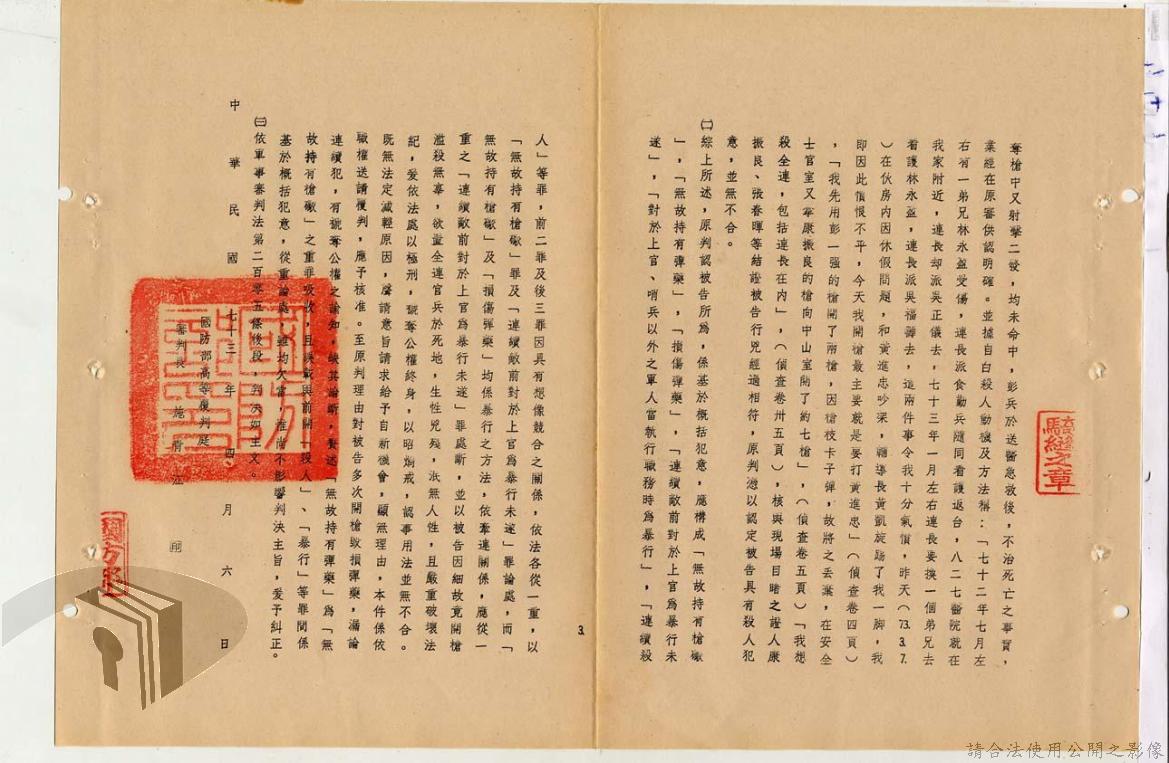 奪槍中又射擊二發，均未命中，彭兵於送醫急救後，不治死亡之事實，
業經在原審供認明確。並據自白殺人動機及方法稱：「七十二年七月左
右有一弟兄林永盈受傷，連長派食勤兵隨同看護返台，八二七醫院就在
我家附近，連長却派吳正儀去，七十三年一月左右連長要挨一個弟兄去
看護林永盈，連長派吳福壽去，這兩件事令我十分氣憤，昨天（73.3.7.
）在伙房內因休假問題，和黃進忠吵深，輔導長黃凱旋踢了我一脚，我
即因此憤恨不平，今天我開槍最主要就是要打黃進忠」（偵查卷四頁）
，「我先用彭一强的槍開了兩槍，因槍枝卡子彈，故將之丢棄，在安全
士官室又拿康振良的槍向中山室開了約七槍」，（偵查卷五頁）「我想
殺全連，包括連長在內」，（偵查卷卅五頁），核與現場目睹之證人康
振良、張春暉等結證被告行兇經過相符，原判憑以認定被告具有殺人犯
意，並無不合。
㈡綜上所述，原判認被告所為，係基於概括犯意，應構成「無故持有槍礮
」，「無故持有彈藥」，「損傷彈藥」，「連續敵前對於上官為暴行未
遂」，「對於上官、哨兵以外之軍人當執行職務時為暴行」，「連續殺
3.
人」等罪，前二罪及後三罪因具有想像競合之關係，依法各從一重，以
「無故持有槍礮」罪及「連續敵前對於上官為暴行未遂」罪論處，而「
無故持有槍礮」及「損傷彈藥」均係暴行之方法，依牽連關係，應從一
重之「連續敵前對於上官為暴行未遂」罪處斷，並以被告因細故竟開槍
濫殺無辜，欲置全連官兵於死地，生性兇殘，泯無人性，且嚴重破壞法
紀，爰依法處以極刑，褫奪公權終身，以昭炯戒，認事用法並無不合。
既無法定減輕原因，聲請意旨請求給予自新機會，顯無理由，本件係依
職權送請覆判，應予核准。至原判理由對被告多次開槍致損彈藥，漏論
連續犯，有褫奪公權之諭知，缺其論斷，贅述「無故持有彈藥」為「無
故持有槍礮」之重罪吸收，且誤載與前開「殺人」、「暴行」等罪間係
基於概括犯意，從重論處，雖均欠當，惟尚不影響判決主旨，爰予糾正。
㈢依軍事審判法第二百零五條後段，判決如主文。
中華民國七十三年四月六日
國防部高等覆判庭
審判長 施
騎縫之章
請合法使用公開之影像